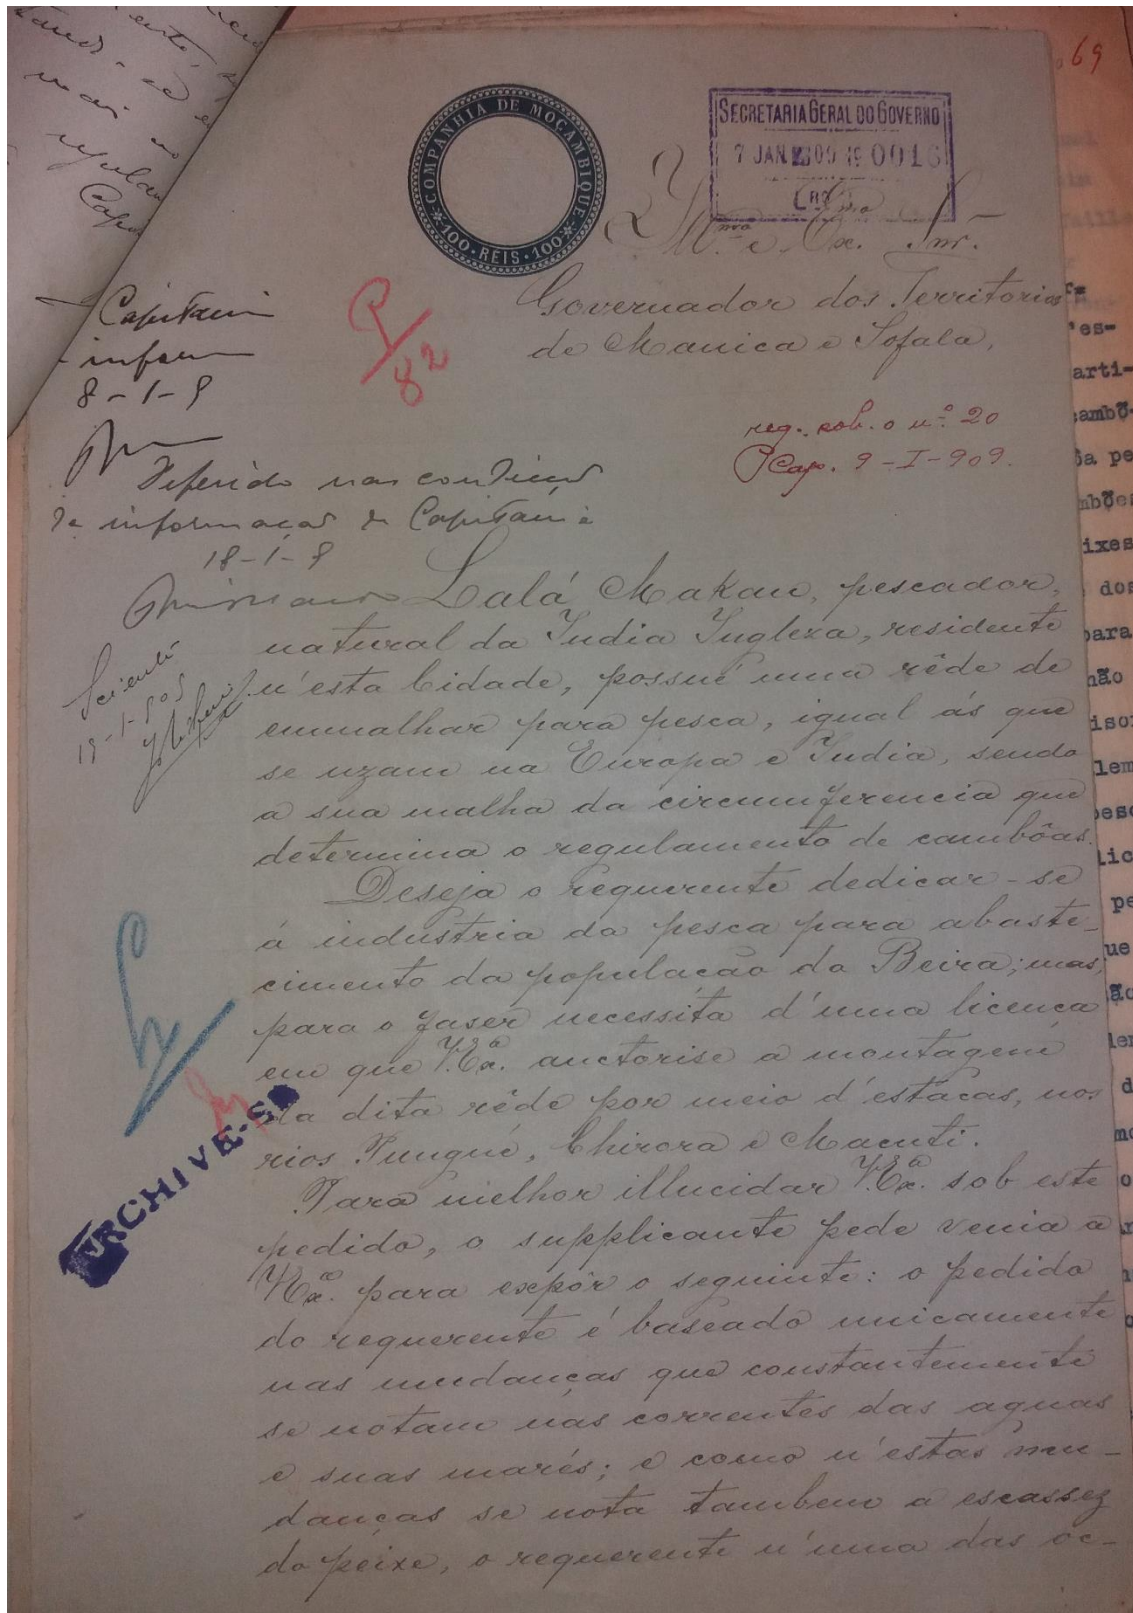 69
COMPANHIA DE MOÇAMBIQUE
100 · REIS · 100
SECRETARIA GERAL DO GOVERNO
7 JAN 1909 0016
Illmo. e Exmo. Snr.
Governador dos Territorios
de Manica e Sofala,
P/82
reg. sob. o nº 20
Cap. 9-I-909.
Capitania
informe
8-1-9
Deferido nas condições
da informação da Capitania
18-1-9
Sciente
19-1-909
Lalá Makan, pescador,
natural da India Ingleza, residente
n'esta Cidade, possue uma rêde de
emmalhar para pesca, igual ás que
se uzam na Europa e India, sendo
a sua malha da circumferencia que
determina o regulamento de cambôas.
Deseja o requerente dedicar-se
á industria da pesca para abaste-
cimento da população da Beira; mas,
para o faser necessita d'uma licença
em que V.Exa. auctorise a montagem
da dita rêde por meio d'estacas, nos
rios Pungué, Chirora e Macuti.
ARCHIVE-SE
Para melhor illucidar V.Exa. sob este
pedido, o supplicante pede venia a
V.Exa. para expôr o seguinte: o pedido
do requerente é baseado unicamente
nas mudanças que constantemente
se notam nas correntes das aguas
e suas marés; e como n'estas mu-
danças se nota tambem a escassez
do peixe, o requerente n'uma das oc-